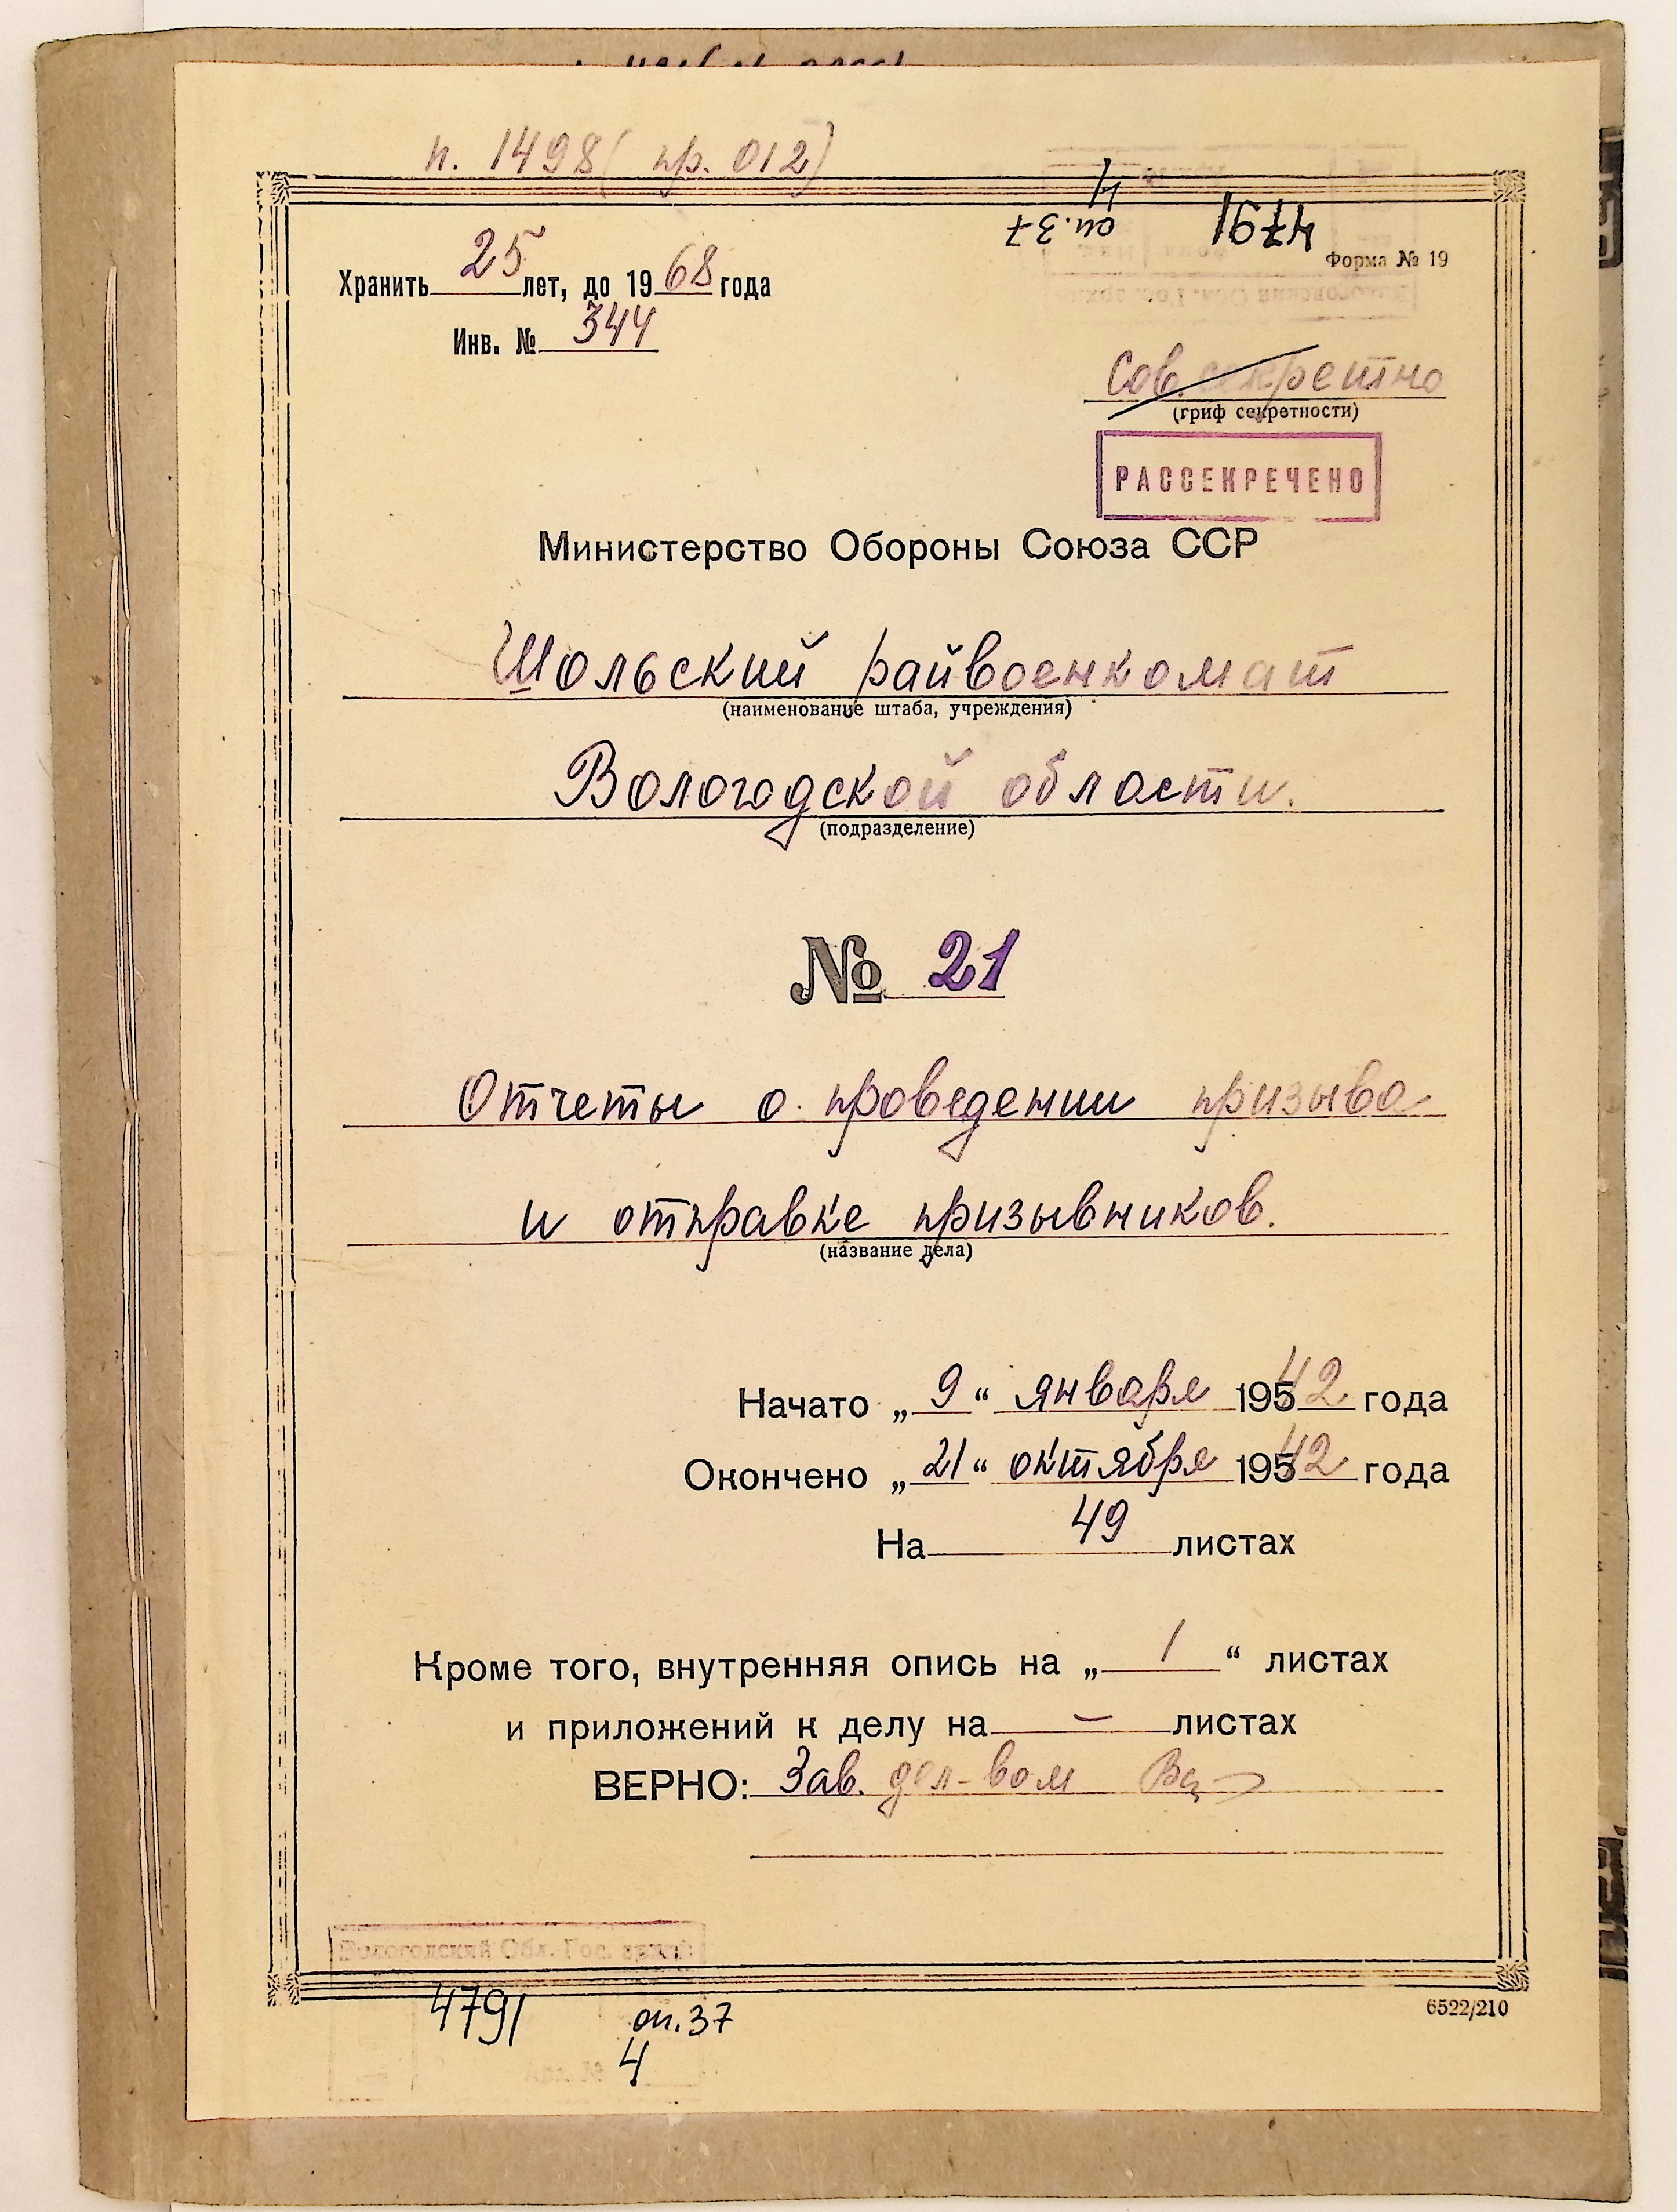 п. 1498 ( пр. 012)
4791 оп. 37
4
Форма № 19
Хранить 25 лет, до 1968 года
Инв. № 344
Сов. секретно
(гриф секретности)
РАССЕКРЕЧЕНО
Министерство Обороны Союза ССР
Шольский райвоенкомат
(наименование штаба, учреждения)
Вологодской области.
(подразделение)
№ 21
Отчеты о проведении призыва
и отправке призывников.
(название дела)
Начато „ 9 “ января 1942 года
Окончено „ 21 “ октября 1942 года
На 49 листах
Кроме того, внутренняя опись на „ 1 “ листах
и приложений к делу на – листах
ВЕРНО: Зав. дел-вом
Вологодский Обл. Гос. архив
4791 оп. 37
Арх. № 4
6522/210